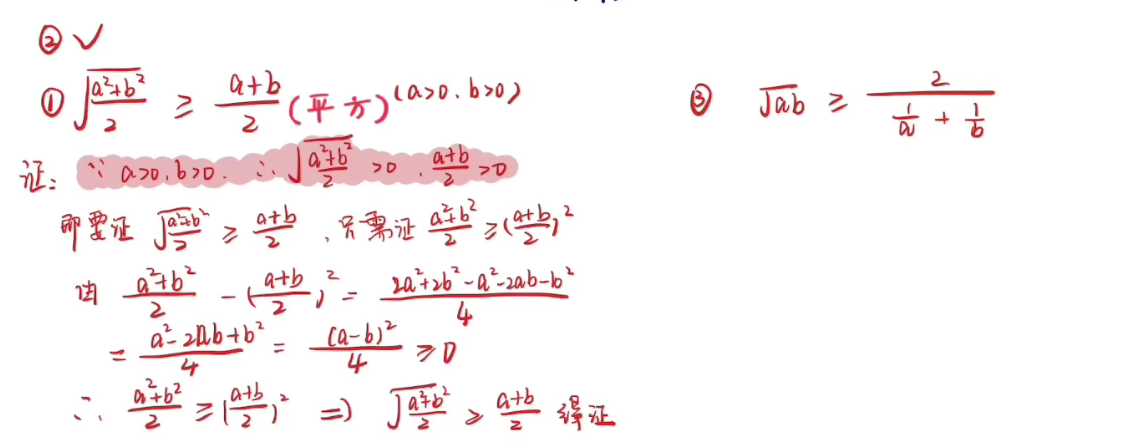 ② ✓
① √((a²+b²)/2) ≥ (a+b)/2 (平方) (a>0, b>0)
证: ∵ a>0, b>0. ∴ √((a²+b²)/2) >0, (a+b)/2 >0
即要证 √((a²+b²)/2) ≥ (a+b)/2, 只需证 (a²+b²)/2 ≥ ((a+b)/2)²
由 (a²+b²)/2 - ((a+b)/2)² = (2a²+2b²-a²-2ab-b²)/4
= (a²-2ab+b²)/4 = (a-b)²/4 ≥ 0
∴ (a²+b²)/2 ≥ ((a+b)/2)² ⇒ √((a²+b²)/2) ≥ (a+b)/2 得证
③ √ab ≥ 2/(1/a + 1/b)